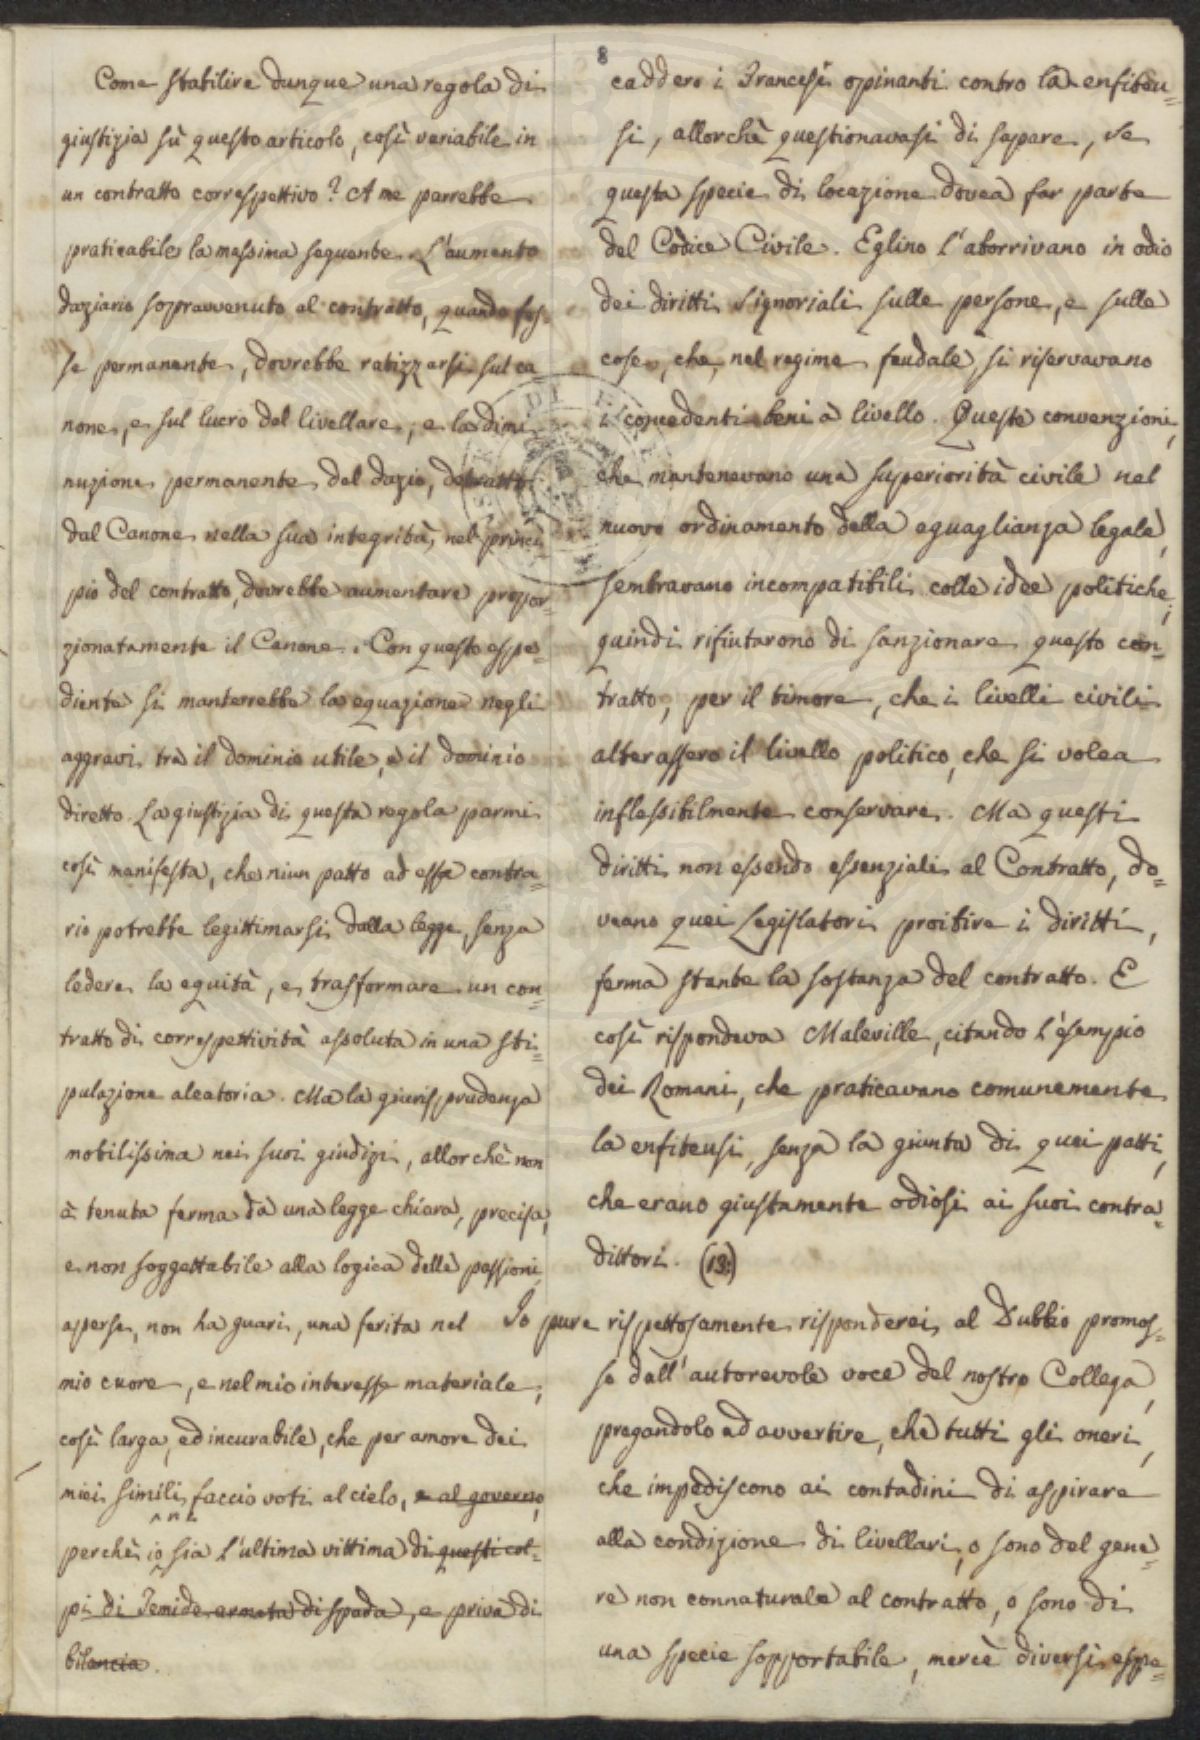 8
Come stabilire dunque una regola di
giustizia sù questo articolo, così variabile in
un contratto correspettivo? A me parrebbe
praticabile la massima seguente. L'aumento
daziario sopravvenuto al contratto, quando fos=
se permanente, dovrebbe ratizzarsi sul ca
none, e sul lucro del livellare; e la dimi
nuzione permanente del dazio, detratto
dal Canone nella sua integrità, nel princi
pio del contratto, dovrebbe aumentare propor=
zionatamente il Canone. Con questo espe=
diente si manterrebbe la equazione negli
aggravi trà il dominio utile, e il dominio
diretto. La giustizia di questa regola parmi
così manifesta, che niun patto ad essa contra=
rio potrebbe legittimarsi dalla legge, senza
ledere la equità, e trasformare un con=
tratto di correspettività assoluta in una sti=
pulazione aleatoria. Ma la giurisprudenza
nobilissima nei suoi giudizi, allorchè non
è tenuta ferma da una legge chiara, precisa,
e non soggettabile alla logica delle passioni,
aperse, non ha guari, una ferita nel
mio cuore, e nel mio interesse materiale,
così larga, ed incurabile, che per amore dei
miei simili faccio voti al cielo, e al governo,
perchè io sia l'ultima vittima di questi col=
pi di Temide armata di spada, e priva di
bilancia.
caddero i Francesi opinanti contro la enfiteu=
si, allorchè questionavasi di sapere, se
questa specie di locazione dovea far parte
del Codice Civile. Eglino l'aborrivano in odio
dei diritti signoriali sulle persone, e sulle
cose, che, nel regime feudale, si riservavano
i concedenti beni à livello. Queste convenzioni,
che mantenevano una superiorità civile nel
nuovo ordinamento della eguaglianza legale,
sembravano incompatibili colle idee politiche;
quindi rifiutarono di sanzionare questo con=
tratto, per il timore, che i livelli civili
alterassero il livello politico, che si volea
inflessibilmente conservare. Ma questi
diritti non essendo essenziali al Contratto, do=
veano quei Legislatori proibire i diritti,
ferma stante la sostanza del contratto. E
così rispondeva Maleville, citando l'esempio
dei Romani, che praticavano comunemente
la enfiteusi, senza la giunta di quei patti,
che erano giustamente odiosi ai suoi contra=
dittori. (13.)
Io pure rispettosamente risponderei al Dubbio promos=
so dall'autorevole voce del nostro Collega,
pregandolo ad avvertire, che tutti gli oneri,
che impediscono ai contadini di aspirare
alla condizione di livellari, o sono del gene=
re non connaturale al contratto, o sono di
una specie sopportabile, mercè diversi espe=